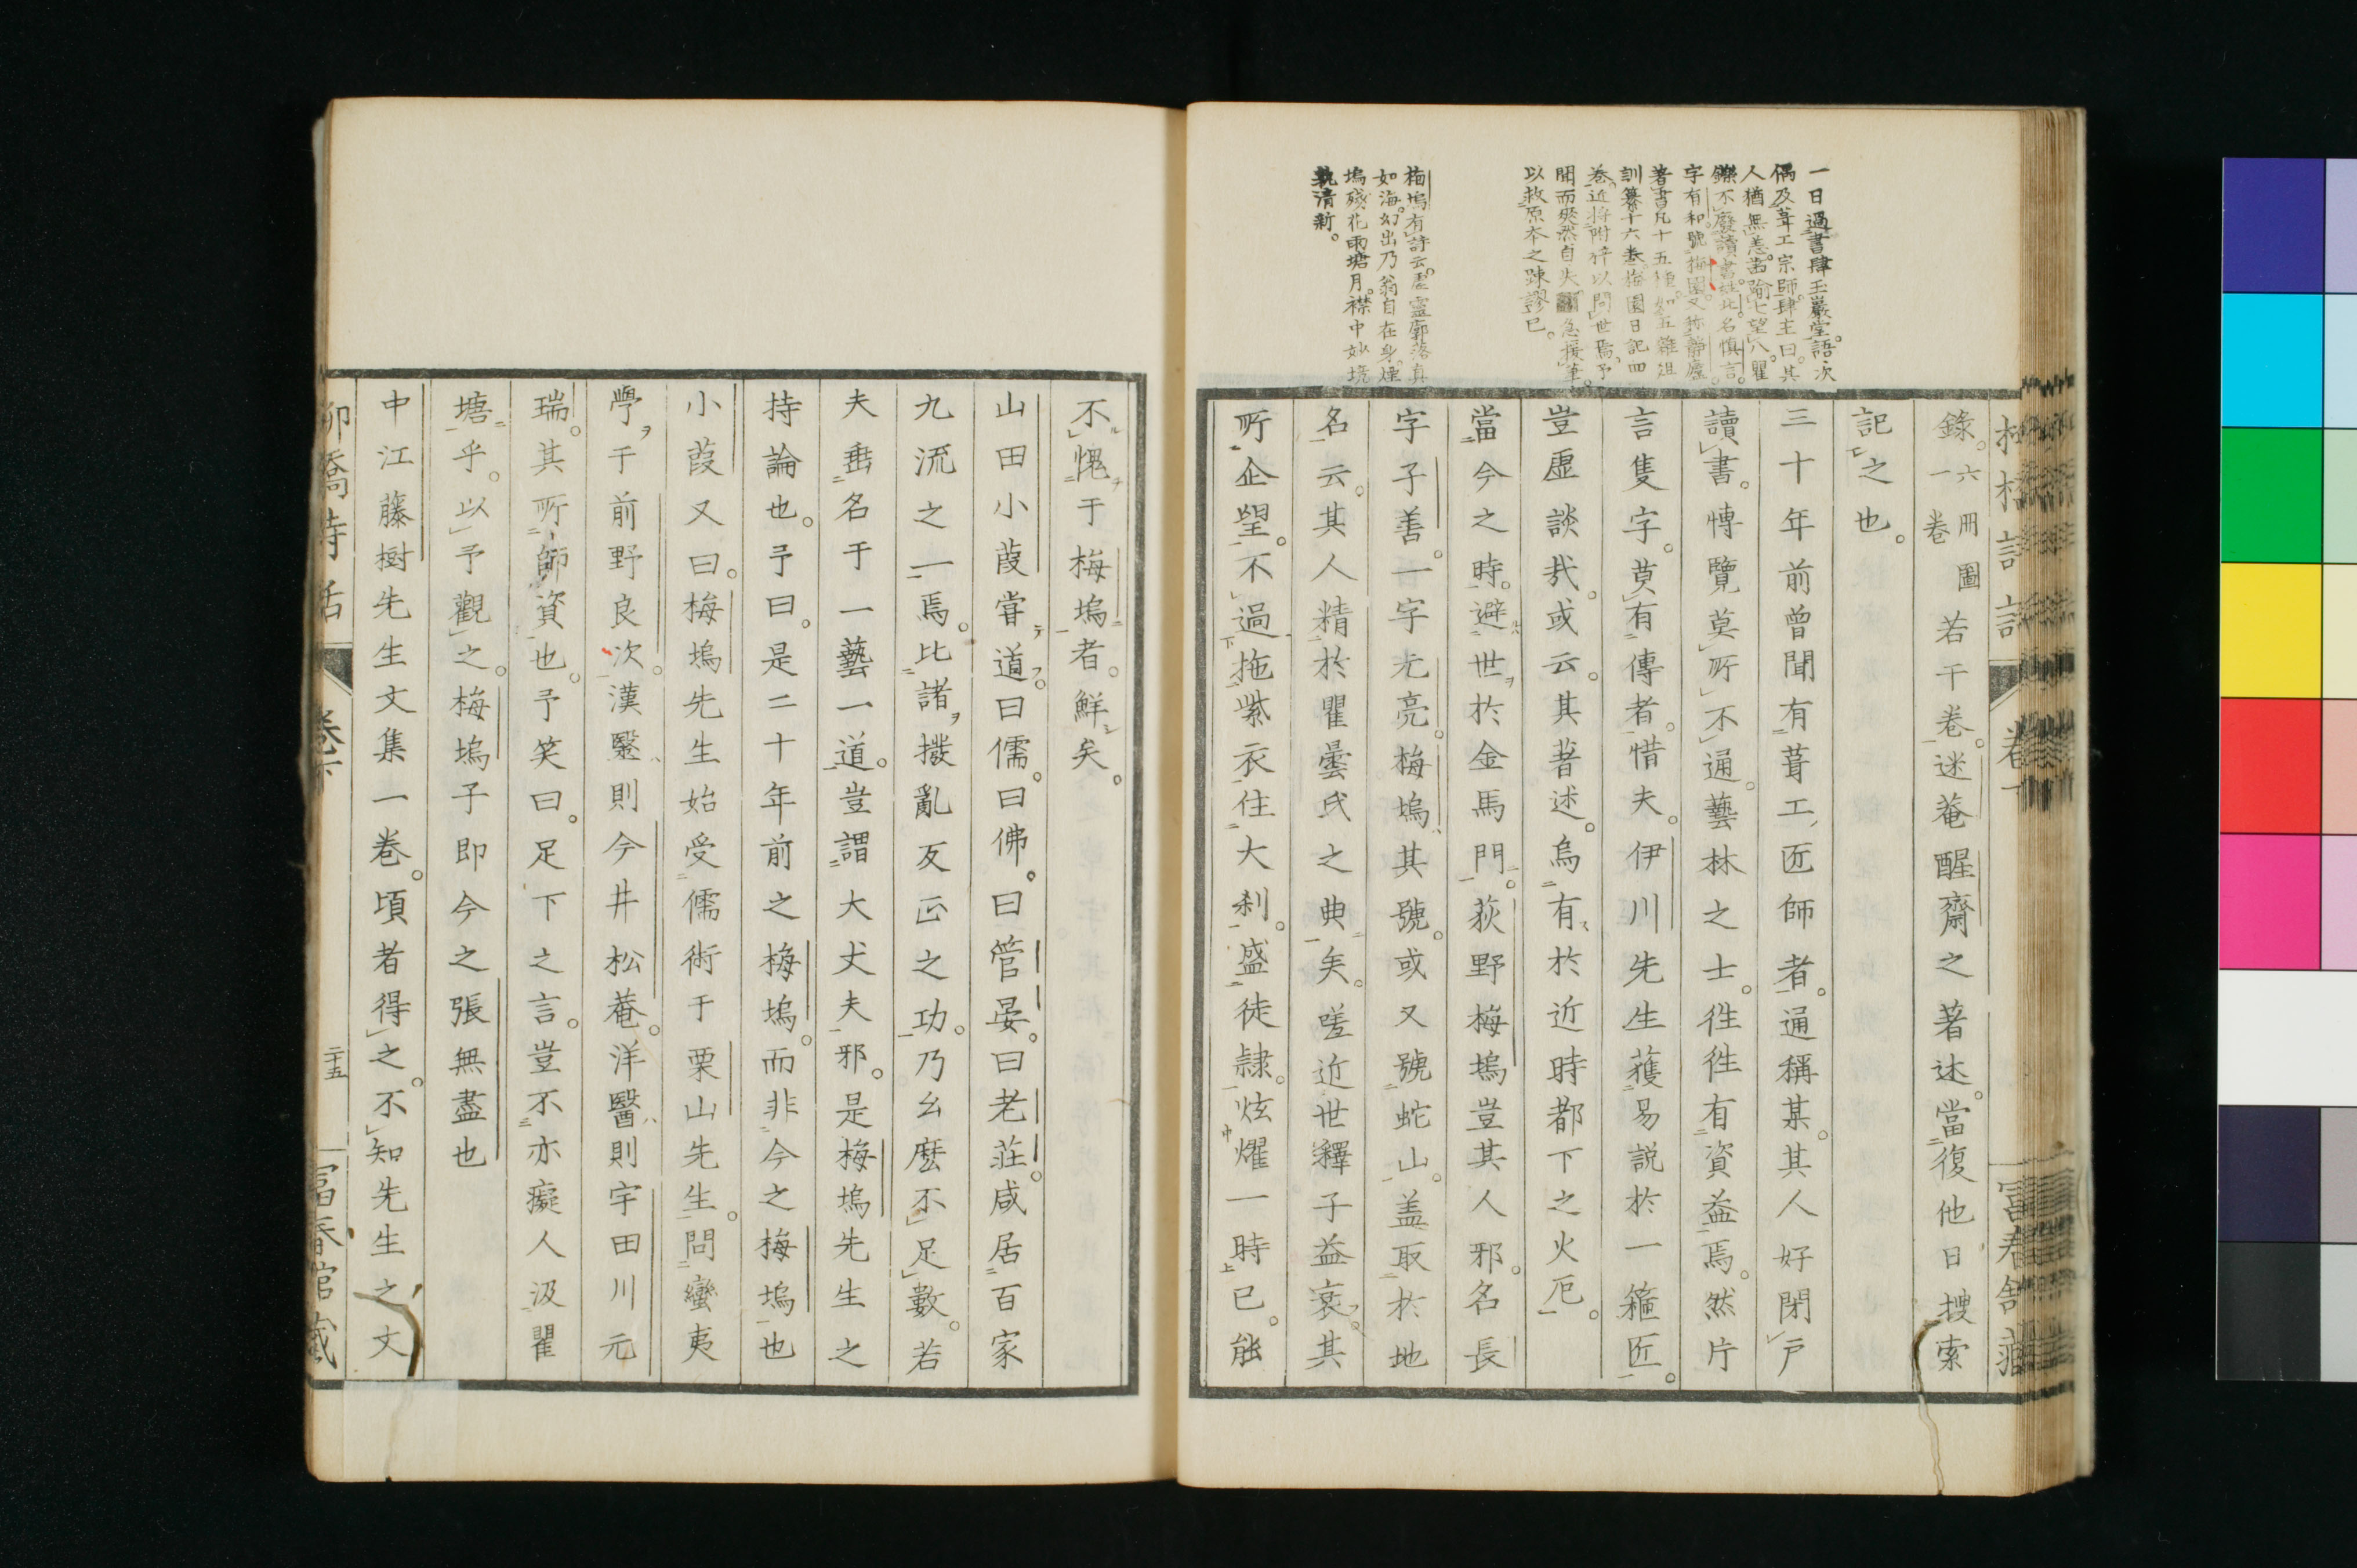 一日過書肆玉巖堂。語次
偶及葺工宗師。肆主曰。其
人猶無恙。齒踰七望八。矍
鑠不廢讀書。姓北。名慎言。
字有和。號梅園。又称靜廬。
著書凡十五種。如五雜俎
訓纂十六卷。梅園日記四
卷。近將附梓以問世焉。予
聞而爽然自失。急援筆。
以救原本之疎謬已。
梅塢有詩云。虛靈廓落真
如海。幻出乃翁自在身。煙
塢殘花雨塘月。襟中妙境
孰清新。
錄。六冊圖一卷若干卷。迷菴醒齋之著述。當復他日搜索
記之也。
三十年前曾聞有葺工匠師者。通稱某。其人好閉戶
讀書。博覽莫所不通。藝林之士。徃徃有資益焉。然片
言隻字。莫有傳者。惜夫。伊川先生獲易説於一箍匠。
豈虛談哉。或云。其著述。烏有於近時都下之火厄。
當今之時。避世於金馬門。荻野梅塢豈其人邪。名長
字子善。一字元亮。梅塢其號。或又號蛇山。盖取於地
名云。其人精於瞿曇氏之典矣。嗟近世釋子益衰。其
所企望。不過拖紫衣住大刹。盛徒隷。炫燿一時已。能
不愧于梅塢者。鮮矣。
山田小葭甞道。曰儒。曰佛。曰管晏。曰老莊。咸居百家
九流之一焉。比諸撥亂反正之功。乃幺麽不足數。若
夫垂名于一藝一道。豈謂大丈夫邪。是梅塢先生之
持論也。予曰。是二十年前之梅塢。而非今之梅塢也
小葭又曰。梅塢先生始受儒術于栗山先生。問蠻夷
學于前野良次。漢毉則今井松菴。洋醫則宇田川元
瑞。其所師資也。予笑曰。足下之言。豈不亦癡人汲瞿
塘乎。以予觀之。梅塢子即今之張無盡也
中江藤樹先生文集一卷。頃者得之。不知先生之文
柳橋詩話
卷下
二十五